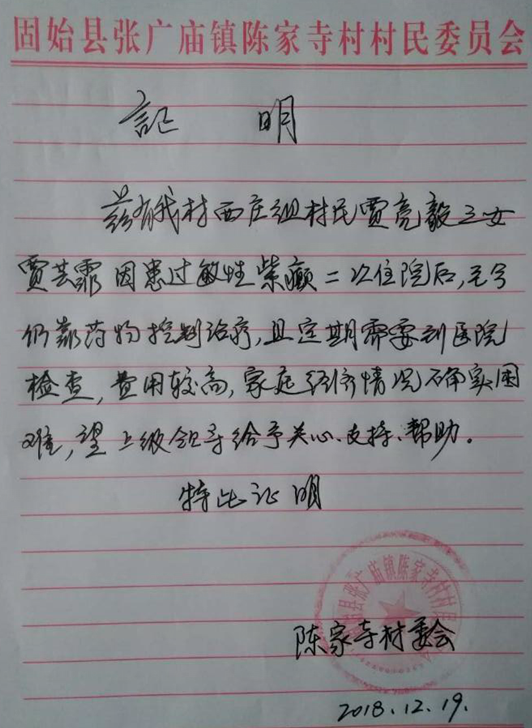 固始县张广庙镇陈家寺村村民委员会
记 明
兹有我村西庄组村民贾亮毅之女
贾芸霏因患过敏性紫癜二次住院后,至今
仍靠药物控制治疗,且定期需要到医院
检查,费用较高,家庭经济情况确实困
难,望上级领导给予关心、支持、帮助。
特此证明
固始县张广庙镇陈家寺村村民
陈家寺村委会
2018.12.19.